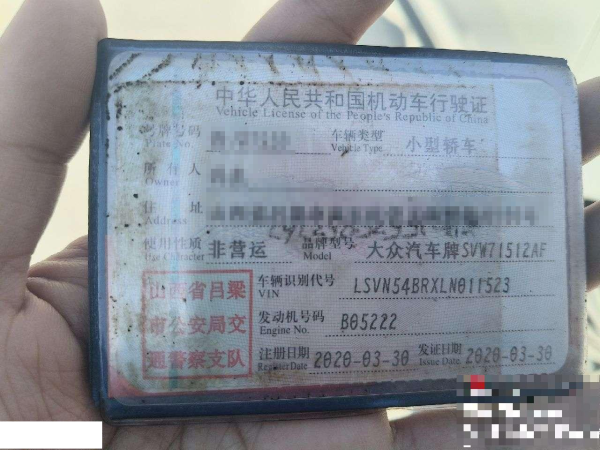 中华人民共和国机动车行驶证
Vehicle License of the People's Republic of China
号牌号码 车辆类型 小型轿车
Plate No. Vehicle Type
所有人
Owner
住址
Address
使用性质 非营运 品牌型号 大众汽车牌SVW71512AF
Use Character Model
山西省吕梁
市公安局交
通警察支队
车辆识别代号 LSVN54BRXLN011523
VIN
发动机号码 B05222
Engine No.
注册日期 2020-03-30 发证日期 2020-03-30
Register Date Issue Date